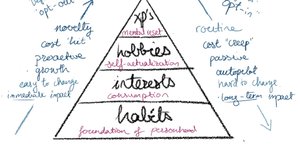 "opt-out"
novelty
cost "hit"
proactive
growth
easy to change
immediate impact
xp's
mental asset
hobbies
self-actualization
interests
consumption
habits
foundation of personhood
opt-in"
routine
cost "creep"
passive
autopilot
hard to change
long-term impact